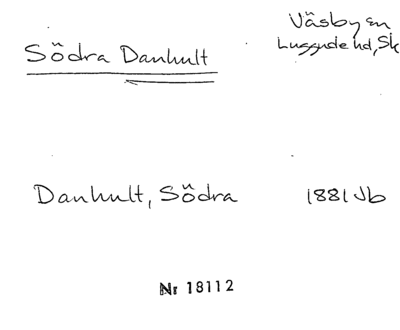 Väsby sn
Södra Danhult
Luggude hd, Sk
Danhult, Södra
1881 Jb
Nr 18112